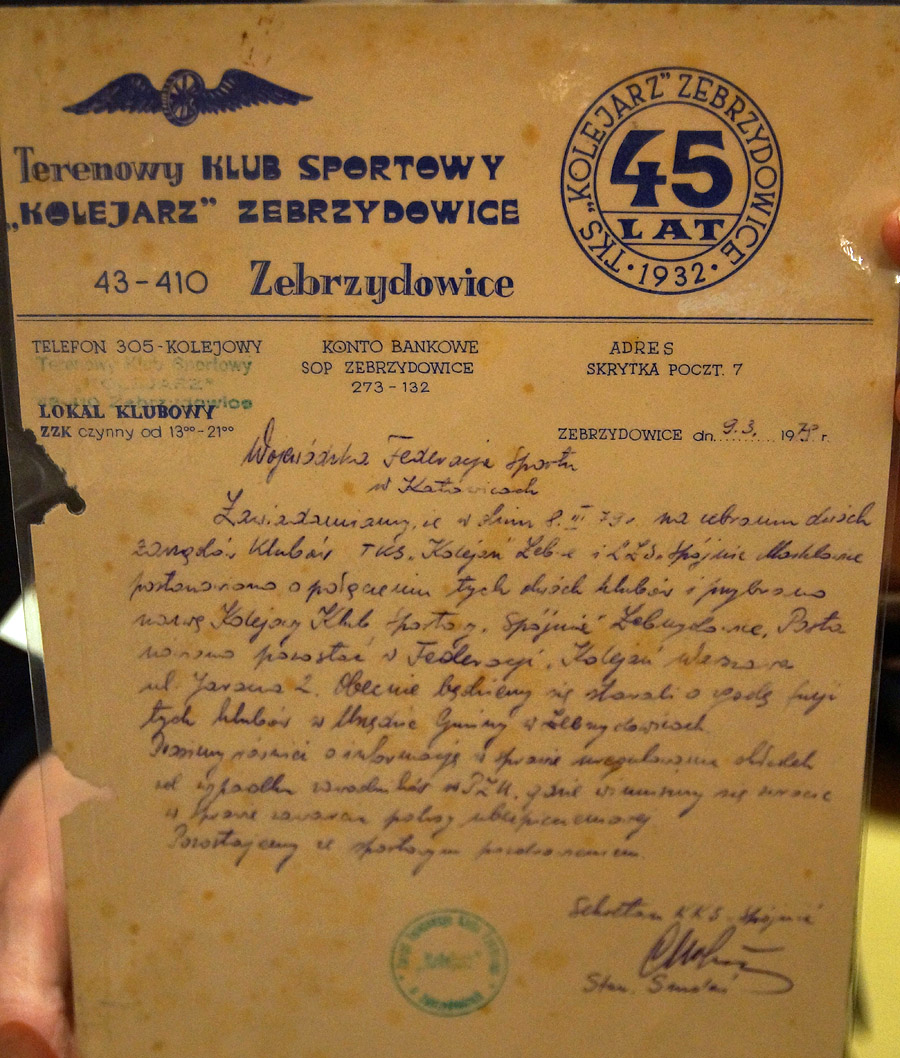 Terenowy KLUB SPORTOWY
„KOLEJARZ” ZEBRZYDOWICE
43-410 Zebrzydowice
TKS „KOLEJARZ” ZEBRZYDOWICE
45
LAT
· 1932 ·
TELEFON 305-KOLEJOWY
KONTO BANKOWE
SOP ZEBRZYDOWICE
273-132
ADRES
SKRYTKA POCZT. 7
Terenowy Klub Sportowy
LOKAL KLUBOWY
ZZK czynny od 13⁰⁰-21⁰⁰
ZEBRZYDOWICE dn. 9.3. 1979 r.
Wojewódzka Federacja Sportu
w Katowicach
Zawiadamiamy, że w dniu 8. III 79 r. na zebraniu dwóch
zarządów Klubów TKS. Kolejarz Zeb-e i LZS. Spójnia
postanowiono o połączeniu tych dwóch klubów i przybrano
nazwę Kolejowy Klub Sportowy. Spójnia Zebrzydowice. Posta
nowiono pozostać w Federacji. Kolejarz Warszawa
ul. 2. Obecnie będziemy się starali o zgodę fuzji
tych klubów w Urzędzie Gminy w Zebrzydowicach.
Prosimy również o informację w sprawie uregulowania składek
od wypadku zawodników w PZU. gdzie winniśmy się zwrócić
w sprawie zawarcia polisy ubezpieczeniowej
Pozostajemy ze sportowym pozdrowieniem.
Sekretarz KKS Spójnia
Stan.